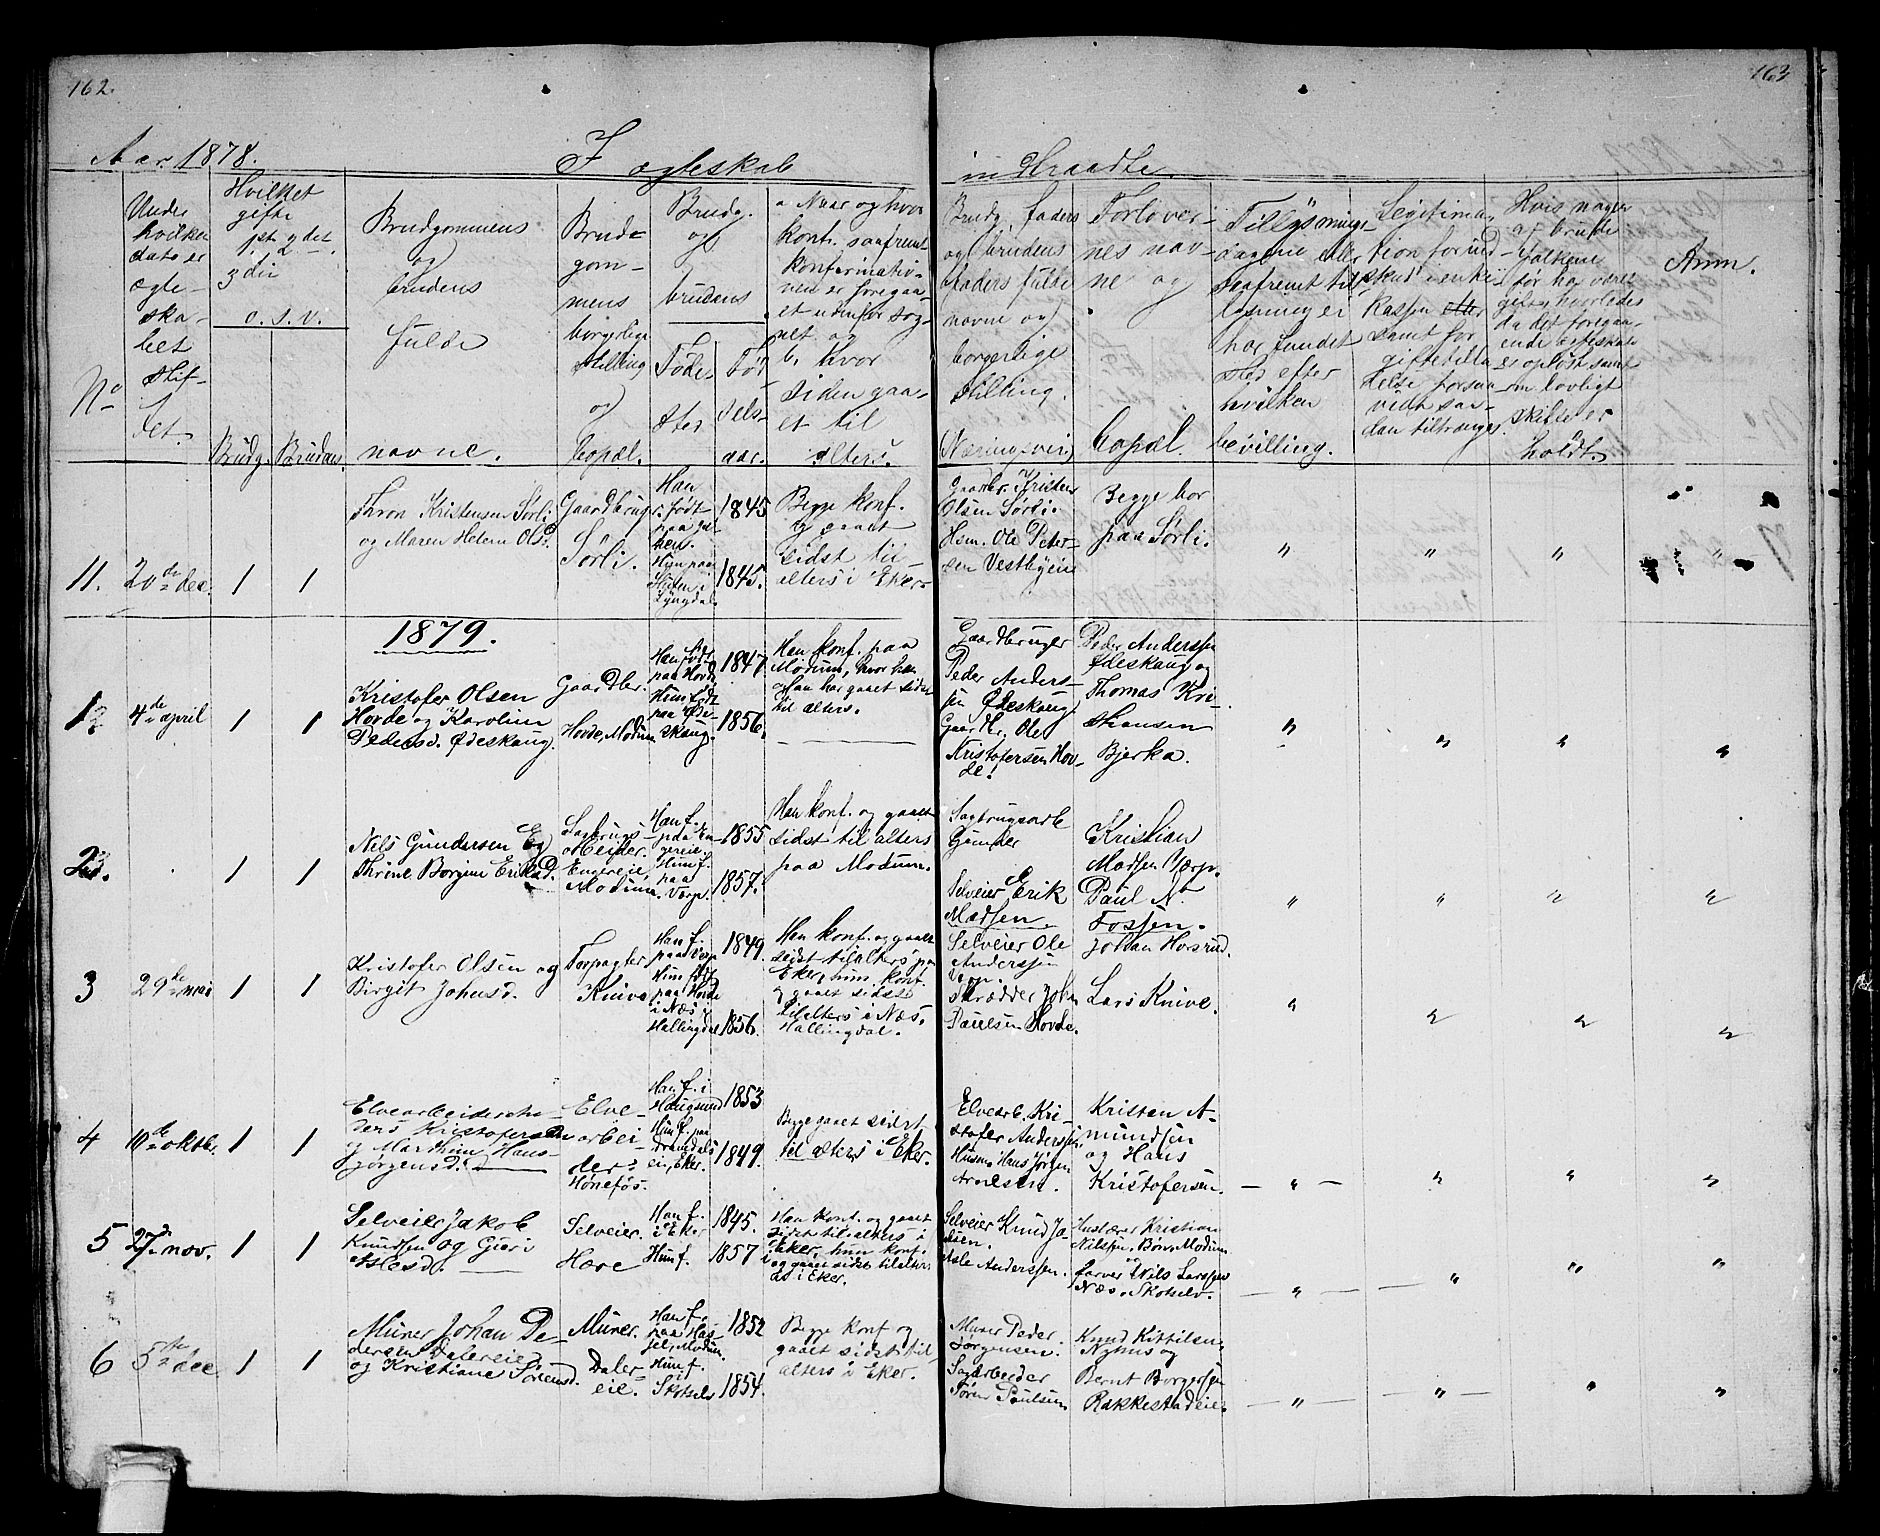 162.
163
Aar 1878.
I ægteskab
indtraadte.
No
Under
hvilken
dato er
ægte-
ska-
bet
stif-
tet.
Hvilket
gifte
1st, 2det,
3die
o. s. v.
Brudg.
Brudens
Brudgommens
og
brudens
fulde
navne.
Brud-
gom-
mens
borgerlige
stilling
og
bopæl.
Brudg.
og
brudens
Føde-
sted
Fød-
sels-
aar.
a Naar og hvor
konf. saafremt
konfirmatio-
nen er foregaa-
et udenfor sog-
net og
b. hvor
siden gaa-
et til
alters.
Brudg. faders
og brudens
faders fulde
navne og
borgerlige
stilling.
Næringsvei
Forlover-
nes nav-
ne og
bopæl.
Tillysnings-
dagene eller
saafremt til-
lysning ei
har fundet
sted efter
hvilken
bevilling.
Legitima-
tion for ind-
skud i enke-
kassen
samt for
giftetilla-
delse forsaa-
vidt saa-
dan tiltrænges.
Hvis nogen
af brude-
folkene
før har været
gift, hvorledes
da det foregaa-
ende ægteskab
er opløst samt
om lovligt
skifte er
holdt.
Anm.
11.
20de dec.
1
1
Thron Kristensen Sørli
og Maren Helene Olsd.
Gaardbruger
Sørli.
Han
født
paa
Hun paa
i
Lyngdal.
1845
1845.
Begge konf.
og gaaet
sidst til
alters i Eker.
Gaardbr. Kristen
Olsen Sørli.
Hsm. Ole Peter-
sen Vestbyeie
Begge bor
paa Sørli.
"
"
"
"
1879.
1.
4de april
1
1
Kristofer Olsen
Hovde og Karoline
Pedersd. Ødeskaug.
Gaardbr.
Hovde, Modum.
Han født
paa Hovde
Hun født
paa Øde-
skaug.
1847
1856.
Han konf. paa
Modum, hvor
Han har gaaet sidst
til alters.
Gaardbruger
Peder Anders-
sen Ødeskaug
Gaardbr. Ole
Kristofersen Hov-
de.
Peder Anderssen
Ødeskaug og
Thomas Kri-
stiansen
Bjerka.
"
"
"
"
2.
1
1
Nils Gundersen Eg
Thrine Borgine Eriksd.
Sagbrugs-
arbeider.
Engereie,
Modum.
Han f.
paa En-
gereie.
Hun f.
paa
Vorp.
1855
1857.
Han konf. og gaaet
sidst til alters
paa Modum.
Sagbrugsarb
Gunder
Selveier Erik
Madssen
Kristian
Madsen Vorp.
Paul N.
Fossen.
"
"
"
"
3
29de mai
1
1
Kristofer Olsen og
Birgit Johnsd.
Forpagter
Knive
Han f.
paa Vorp
Hun født
paa Hovde
i Næs i
Hallingdal
1849.
1856.
Han konf. og gaaet
sidst til alters paa
Eker, hun konf.
og gaaet sidst
til alters i Næs,
Hallingdal.
Selveier Ole
Anderssen
Vorp.
Skrædder John
Paulsen Hovde.
Johan Horsrud
Lars Knive.
"
"
"
"
4
10de oktbr.
1
1
Elvearbeider
Kristofersen
og Marthine Hans-
jørgensd.
Elve-
arbei-
der
Hønefos.
Han f. i
Haugsund
Hun f. paa
ei, Eker.
1853
1849.
Begge gaaet sidst
til alters i Eker.
Elvearb. Kri-
stofer Anderssen.
Husm. Hans Jørgen
Arnesen.
Kristen A-
mundsen
og Hans
Kristofersen.
"
"
"
"
5
27de nov.
1
1
Selveier Jakob
Knudsen og Guri
Aslesd.
Selveier.
Hære
Han f.
i Eker
Hun f.
1845.
1857
Han konf. og gaaet
sidst til alters i
Eker, hun konf.
og gaaet sidst til alters
i Eker.
Selveier Knud Ja-
Asle Anderssen.
Kristian
Nilsen, Bøn, Modum
farver Nils Larssen
Næs, Skotselv.
"
"
"
"
6
5te dec.
1
1
Murer Johan Pe-
dersen Dalereie
og Kristiane Sørensd.
Murer.
Daler-
eie.
Han f.
paa Has-
sel, Modum.
Hun f.
i
Skotselv
1852
1854.
Begge konf og
gaaet sidst til
alters i Eker.
Murer Peder
Jørgensen.
Sagarbeider
Søren Paulsen
Knud Kittilsen,
Nyhus og
Bernt Borgersen
Rakkestadeie.
"
"
"
"